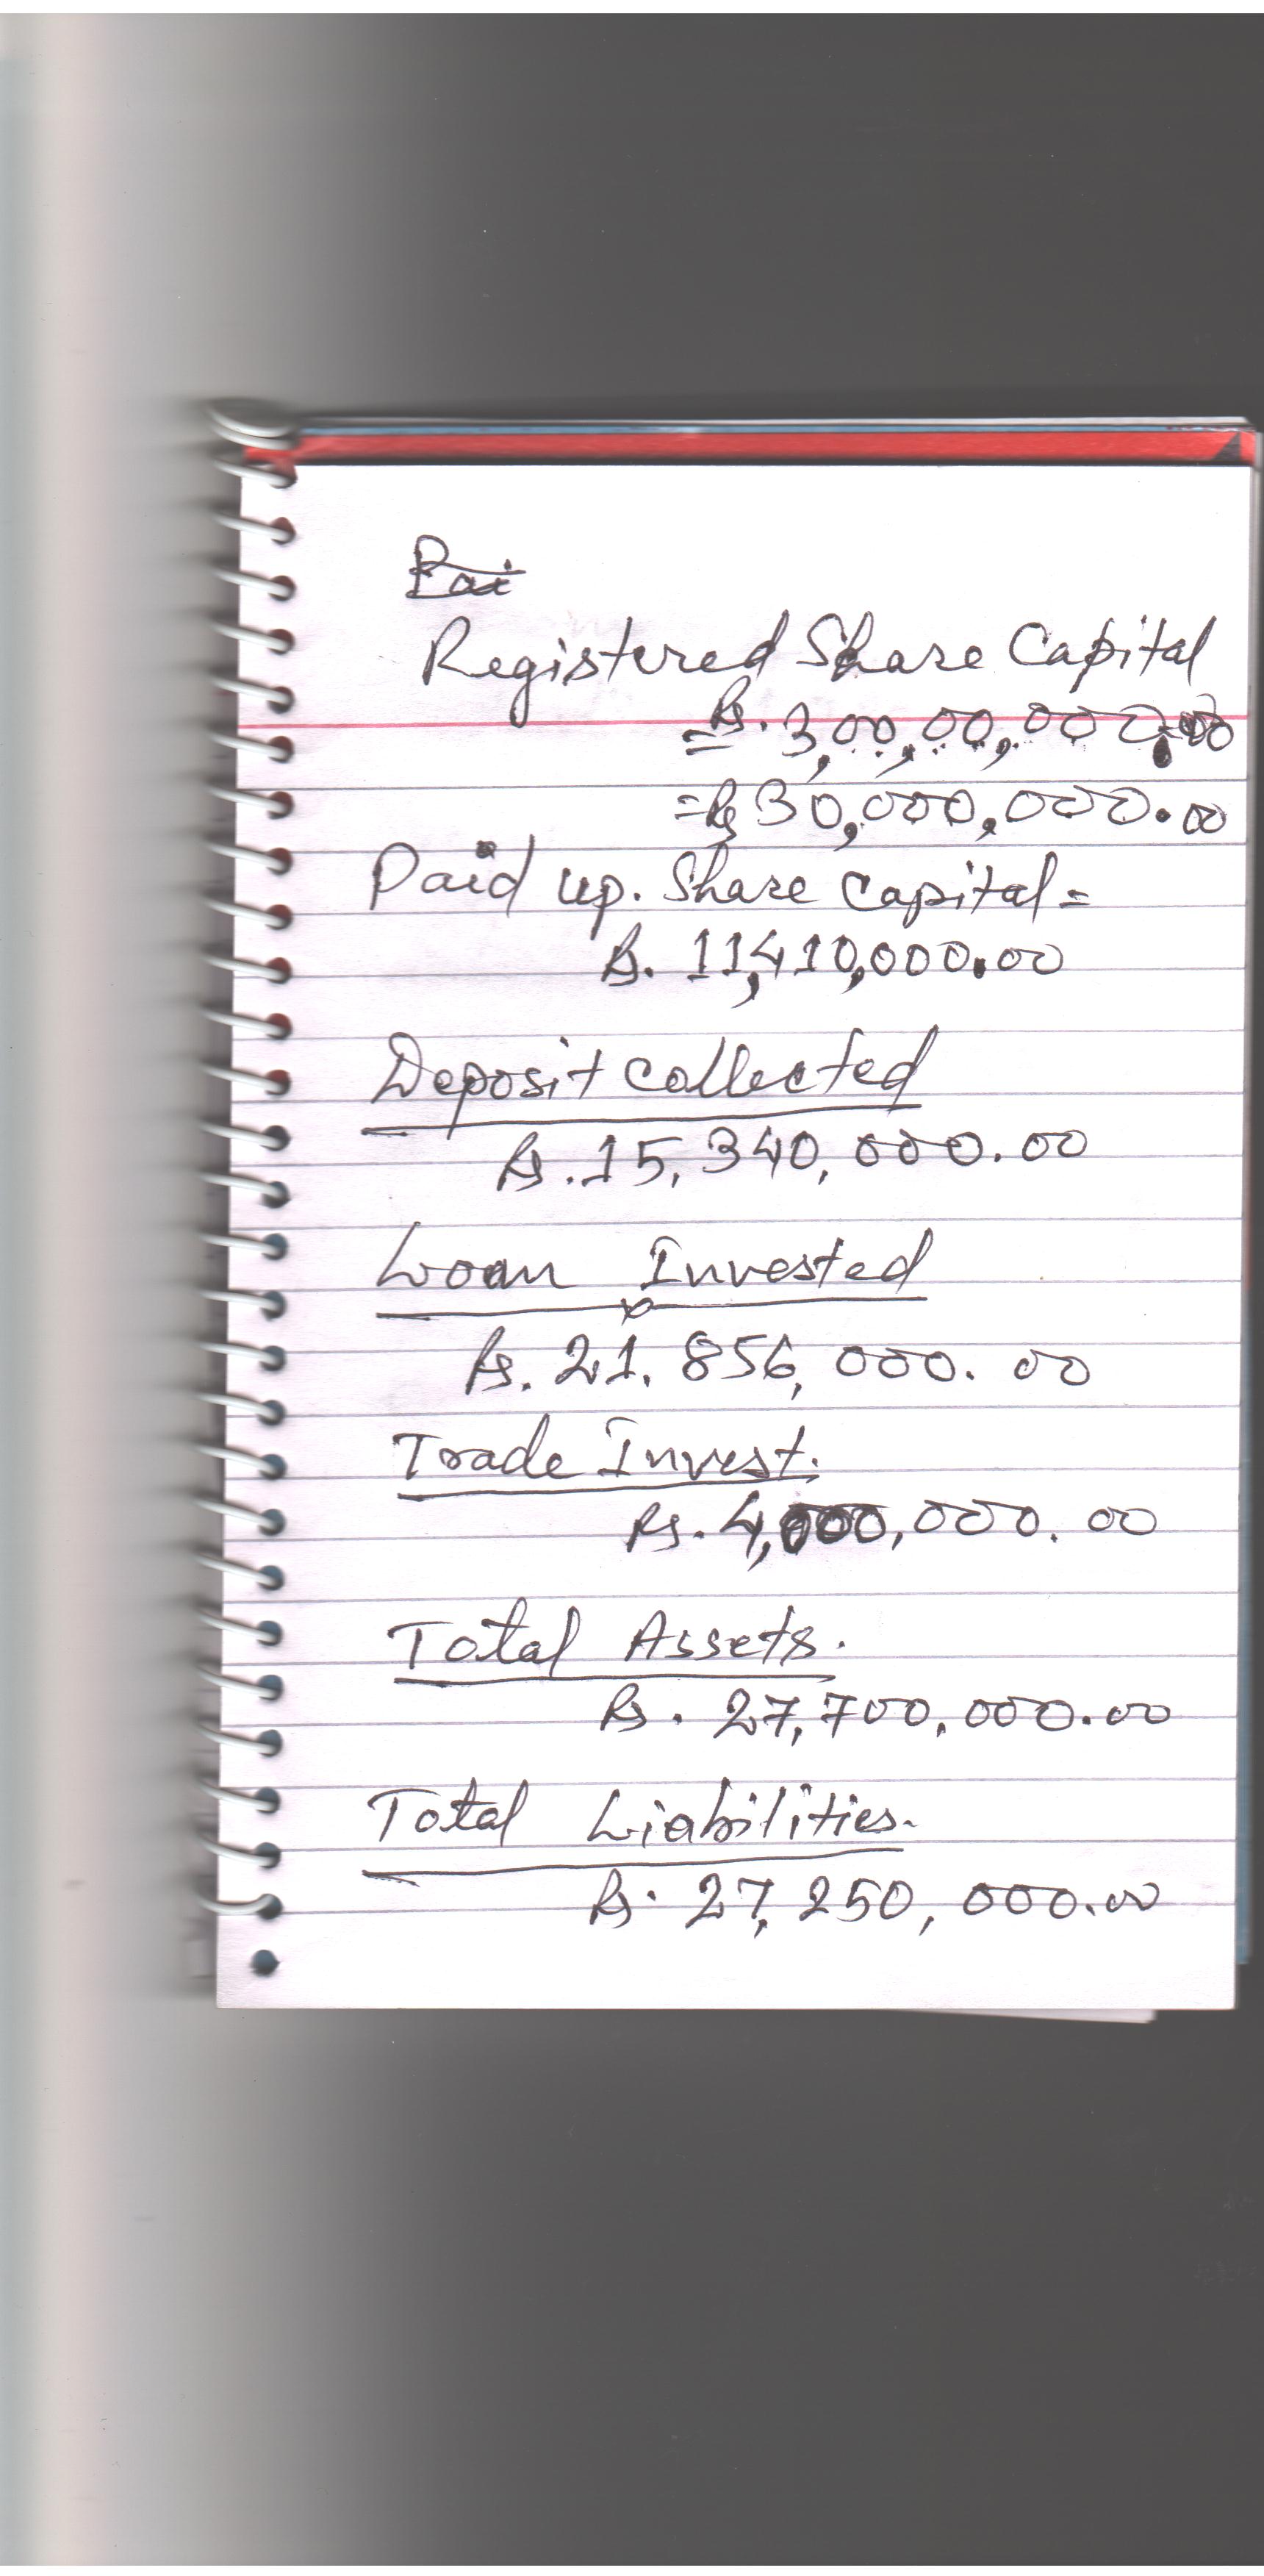 Pai
Registered Share Capital
= Rs. 3,00,00,000.00
= Rs 30,000,000.00
Paid up. Share Capital =
Rs. 11,410,000.00
Deposit collected
Rs. 15,340,000.00
Loan Invested
Rs. 21.856,000.00
Trade Invest.
Rs. 4,000,000.00
Total Assets.
Rs. 27,700,000.00
Total Liabilities.
Rs. 27,250,000.00